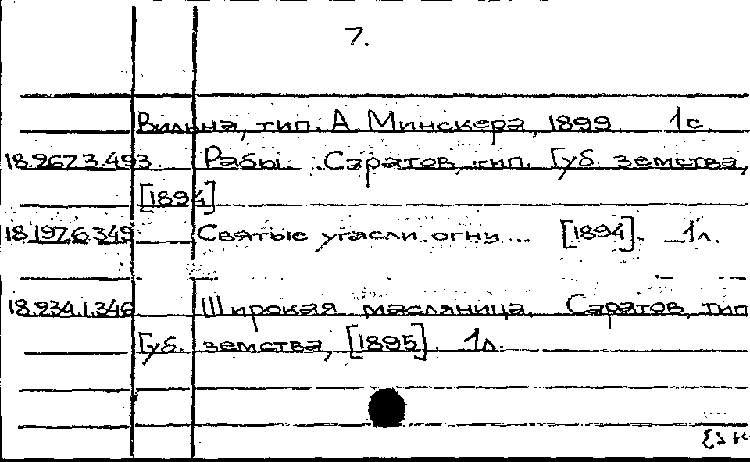 7.
Вильна, тип. А. Минскера, 1899. 1с.
18.267.3.493. Рабы. Саратов, тип. Губ. земства,
[1894]
18.197.6.349 Святые угасли огни... [1894]. 1л.
18.234.1.346 Широкая масляница. Саратов, тип.
Губ. земства, [1895]. 1л.